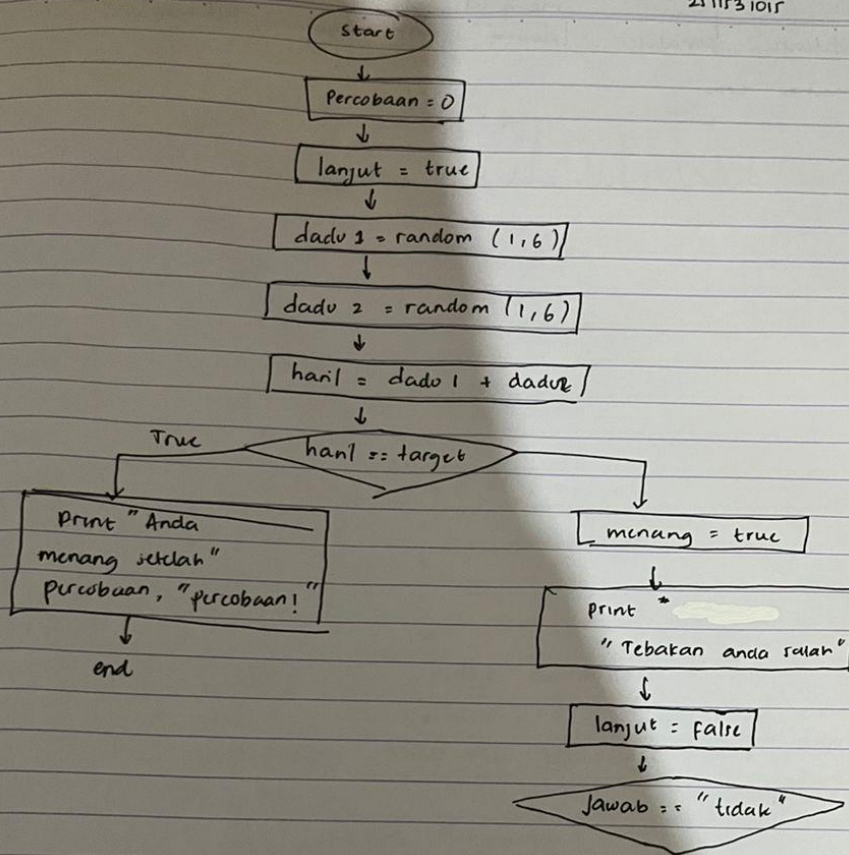 start
Percobaan = 0
lanjut = true
dadu 1 = random (1,6)
dadu 2 = random (1,6)
hasil = dadu 1 + dadu 2
hasil == target
True
print "Anda
menang setelah"
percobaan, "percobaan!"
end
menang = true
print "
"Tebakan anda salah"
lanjut = false
Jawab == "tidak"